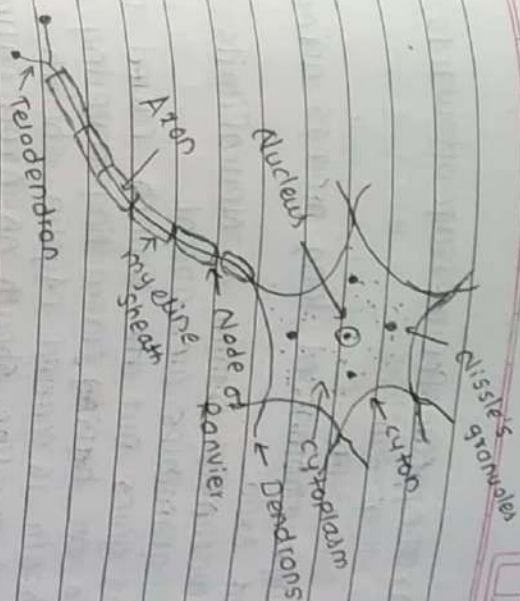 Nissle's
granuoles
cyton
cytoplasm
Dendrons
Nucleus
Node of
Ranvier
Axon
myeline
sheath
Telodendron